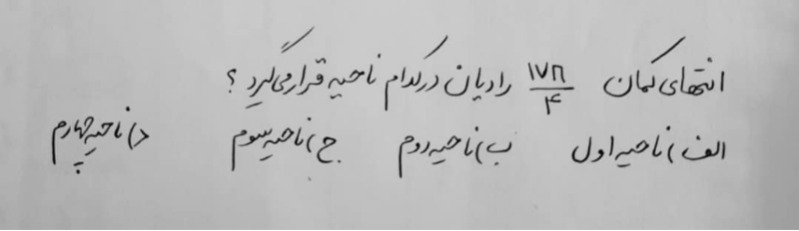 انتهای کمان ۱۷π/۴ رادیان در کدام ناحیه قرار می‌گیرد ؟
الف) ناحیه اول ب) ناحیه دوم ج) ناحیه سوم د) ناحیه چهارم